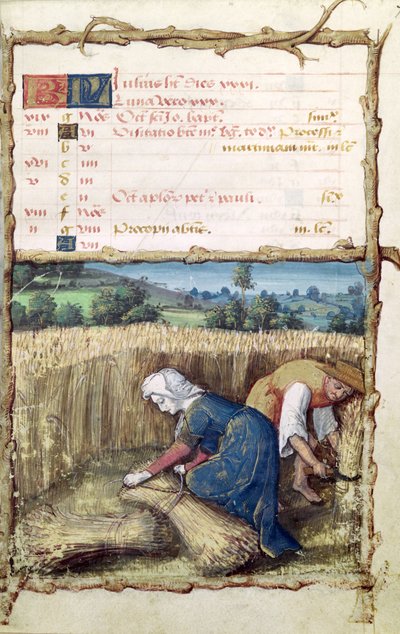 KL Iulius ht Dies xxxi.
Luna vero xxx.
xix g Oct Io. bapt.
viii A vi Visitatio bte Processi
b v martiniani m. lc
xvi c iiii
v d iii
e ii Oct aplor petr z pauli
xiii f Nōs
ii g viii Procopii abbis m. lc
A vii